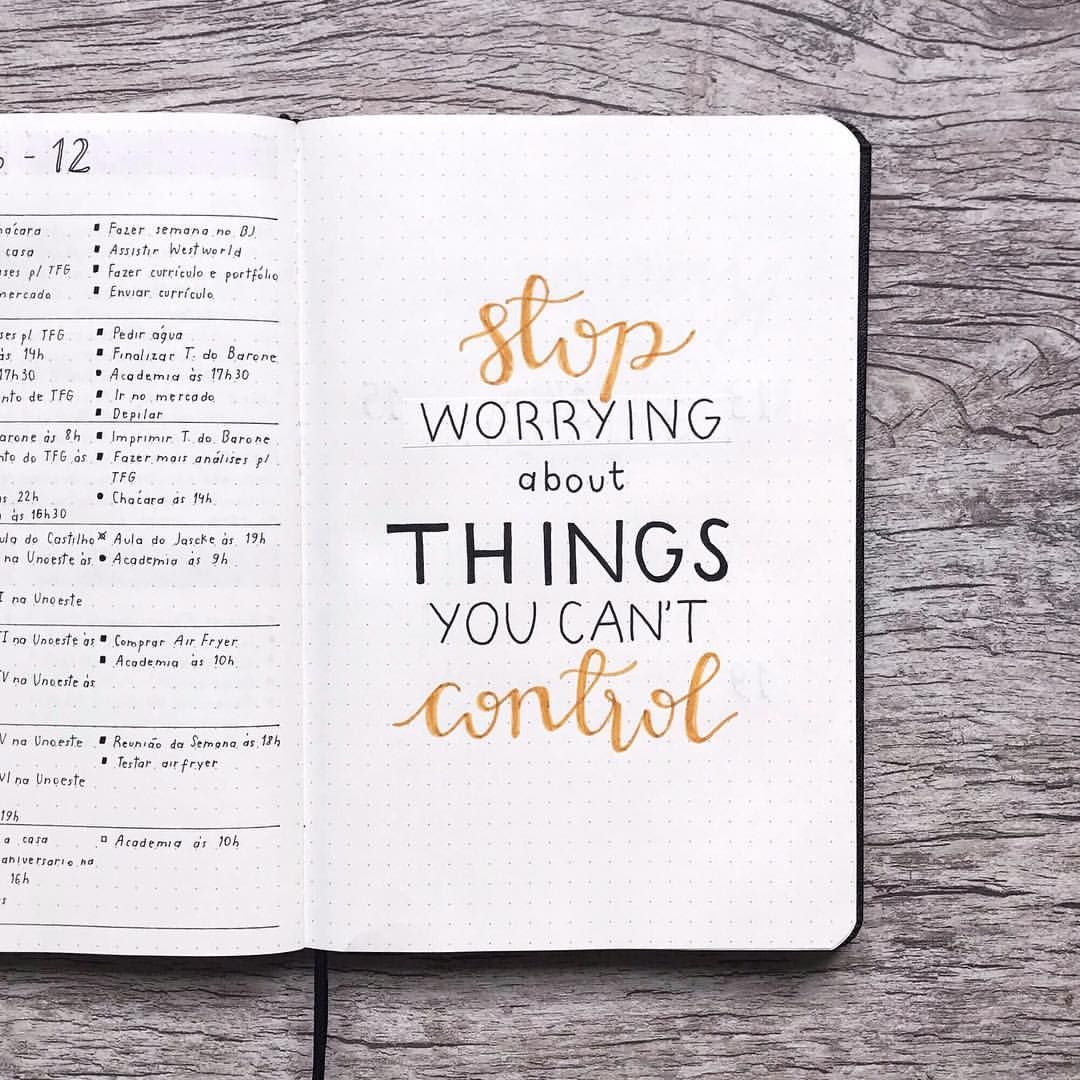 - 12
casa
p/ TFG
mercado
■ Fazer semana no BJ
■ Assistir Westworld
■ Fazer currículo e portfólio
■ Enviar currículo
pl TFG
às 14h
17h30
de TFG
■ Pedir água
■ Finalizar T. do Barone
● Academia às 17h30
■ Ir no mercado
■ Depilar
às 8h
do TFG às
22h
às 16h30
■ Imprimir T. do Barone
■ Fazer mais análises p/
TFG
● Chácara às 14h
do Castilho
na Unoeste às
na Unoeste
Aula do Jascke às 19h
● Academia às 9h
na Unoeste às
na Unoeste às
■ Comprar Air Fryer
■ Academia às 10h
na Unoeste
na Unoeste
19h
■ Reunião da Semana às 18h
■ Testar airfryer
a casa
aniversario na
16h
□ Academia às 10h
stop
WORRYING
about
THINGS
YOU CAN'T
control